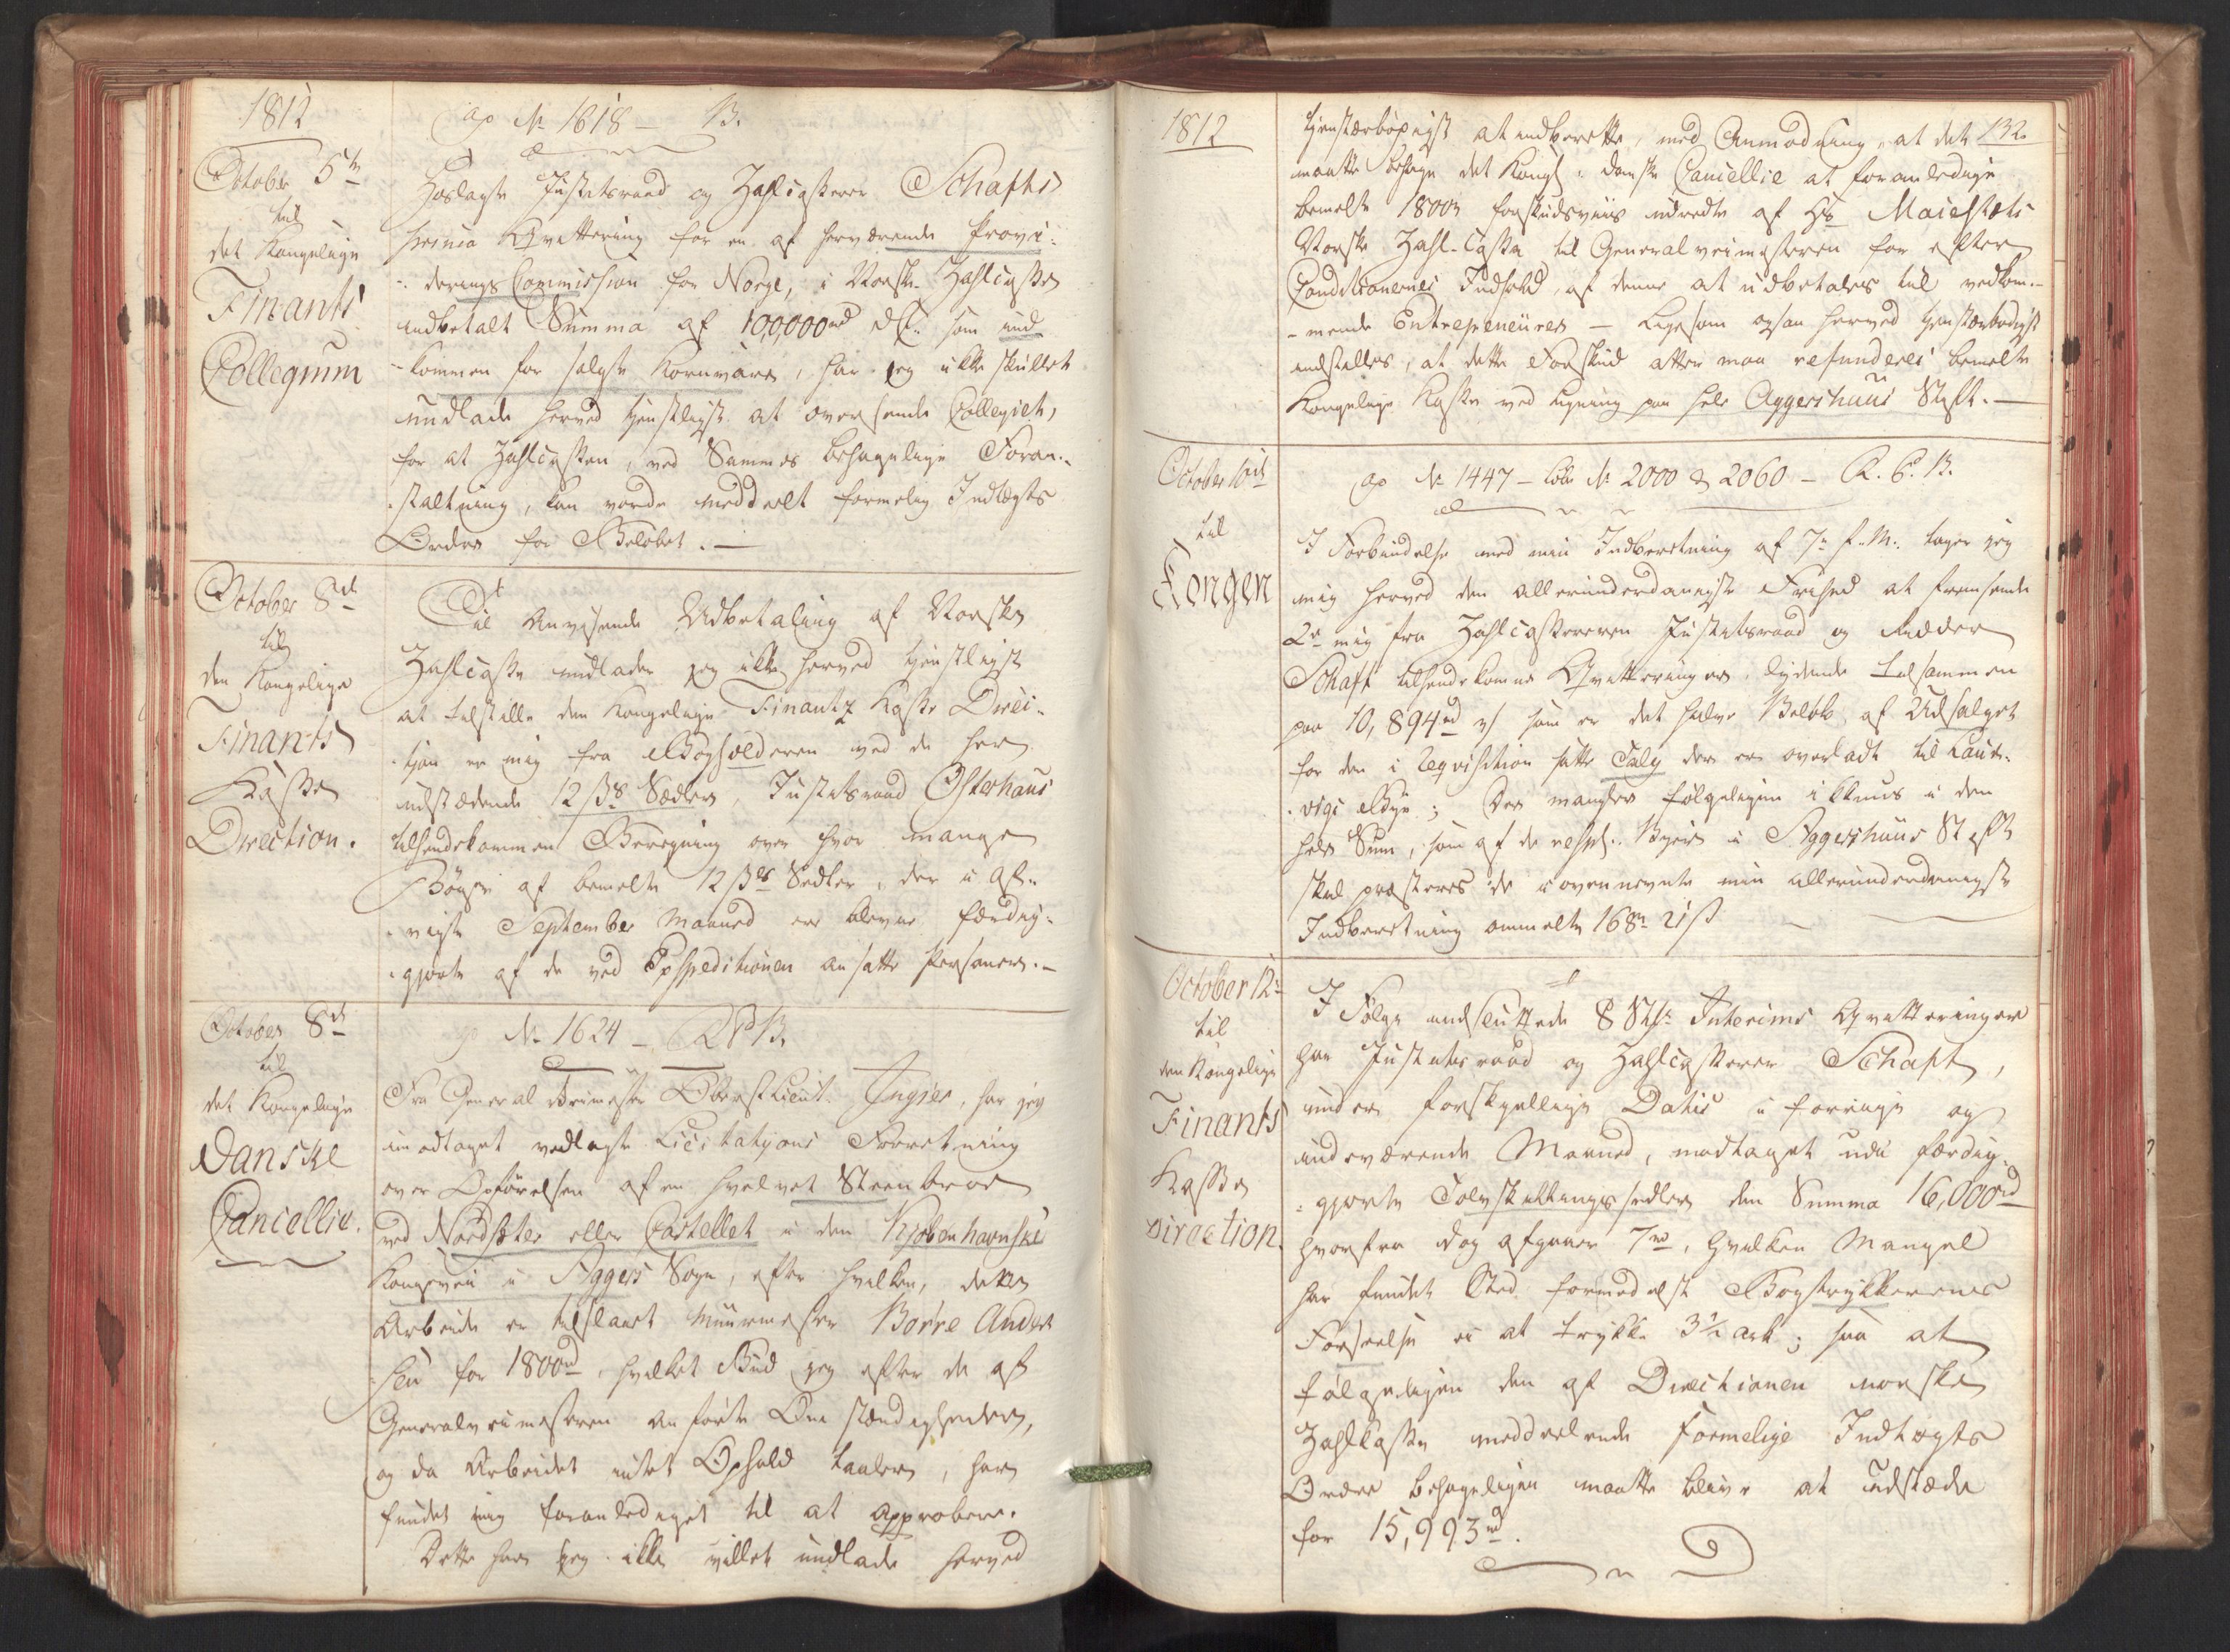 1812
ap No 1618 – B.
October 5te
til
det Kongelige
Finants
Collegium
Hoslagte Justitsraad og Zahlcasserer Schafts
prima Qvittering for en af herværende Provi-
-derings Commission for Norge, i Norske Zahlcasse
indbetalt Summa af 100,000rd DC. som ind-
-kommen for solgte Kornvare, har jeg ikke skullet
undlade herved tjenstligst at oversende Collegiet,
for at Zahlcassen, ved Sammes behagelige Foran-
-staltning, kan vorde meddeelt formelig Indtægts
Ordre for Beløbet. —
October 8de
til
den Kongelige
Finants
Kasse
Direction.
Til Anvisende Udbetaling af Norske
Zahlcasse undlader jeg ikke herved tjenstligst
at tilstille den Kongelige Finantz Kasse Direc-
-tion en mig fra Bogholderen ved de her
udstædende 12 ß Sedler, Justitsraad Osterhaus
tilhændekommen Beregning over hvor mange
Bøger af bemelte 12 ßs Sedler, der i af-
-vigte September Maaned ere blevne færdig-
-gjorte af de ved Expeditionen ansatte Personer. –
October 8de
til
det Kongelige
Danske
Cancellie.
ap No 1624 – R.P.B.
Fra General Veimester Oberstlieut. Ingier, har jeg
imodtaget vedlagte Licitations Forretning
over Opførelsen af en hvelvet Steenbroe
ved Nordsæter eller Castellet i den Kjøbenhavnske
Kongevei i Aggers Sogn, efter hvilken, dette
Arbeide er tilslaaet Muurmester Børre Ander-
-sen for 1800rd, hvilket Bud jeg efter de af
Generalveimesteren anførte Omstændigheder,
og da Arbeidet intet Ophold taaler, har
fundet mig foranlediget til at approbere.
Dette har jeg ikke villet undlade herved
1812
132.
tjenstærbødigst at indberette, med Anmodning, at det
maatte behage det Kongl: danske Cancellie at foranledige
bemelte 1800rd forskudsviis udredte af Hs Majestæts
Norske Zahl-Casse til Generalveimesteren for efter
Conditionernes Indhold, af denne at udbetales til vedkom-
-mende Entrepreneurer – Ligesom ogsaa herved tjenstærbødigst
indstilles, at dette Forskud atter maa refunderes bemelte
Kongelige Kasse ved Ligning paa hele Aggershuus Stift. —
October 10de
til
Kongen
ap No 1447 – Cob No 2000 & 2060 – R. P. B.
I Forbindelse med min Indberetning af 7de f. M. tager jeg
mig herved den allerunderdanigste Frihed at fremsende
2de mig fra Zahlcassereren Justitsraad og Ridder
Schaft tilhændekomne Qvitteringer, lydende tilsammen
paa 10,894rd som er det halve Beløb af Udsalget
for den i Reqvisition satte Talg der er overladt til Laur-
-vigs Bye; Der mangler følgeligen ikkuns i den
hele Sum, som af de resp. Byer i Aggershuus Stift
skal præsteres de i ovennevnte min allerunderdanigste
Indberetning ommelte 168rd 21ß —
October 12te
til
den Kongelige
Finants
Kasse
Direction.
I Følge indsluttede 8 Stk. Interims Qvitteringer
har Justitsraad og Zahlcasserer Schaft,
under forskjellige Datis i forrige og
indeværende Maaned, modtaget udi færdig-
-gjorte Tolvskillingssedler den Summa 16,000rd
hvorfra dog afgaaer 7rd, hvilken Mangel
har fundet Sted formedelst Bogtrykkerens
Forseelse ei at trykke 3½ ark; saa at
følgeligen den af Directionen norske
Zahlkasse meddeelende formelige Indtægts
Ordre behageligen maatte blive at udstæde
for 15,993rd.